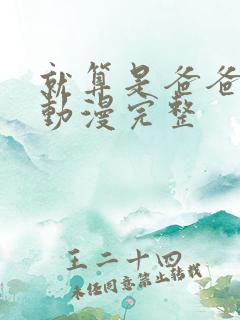 就算是爸爸
動漫完整
王二十四
未经同意禁止转载